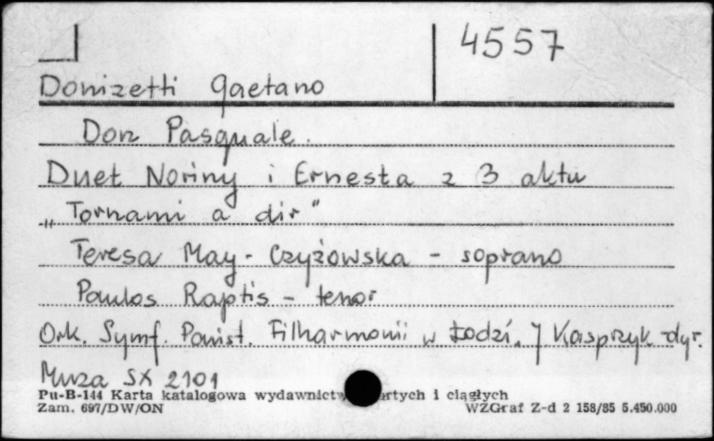 4557
Donizetti Gaetano
Don Pasquale.
Duet Noriny i Ernesta z 3 aktu
„Tornami a dir"
Teresa May-Czyżowska - soprano
Paulos Raptis - tenor
Ork. Symf. Państ. Filharmonii w Łodzi. J Kasprzyk-dyr.
Muza SX 2101
Pu-B-144 Karta katalogowa wydawnictw artych i ciągłych
Zam. 697/DW/ON WZGraf Z-d 2 158/85 5.450.000